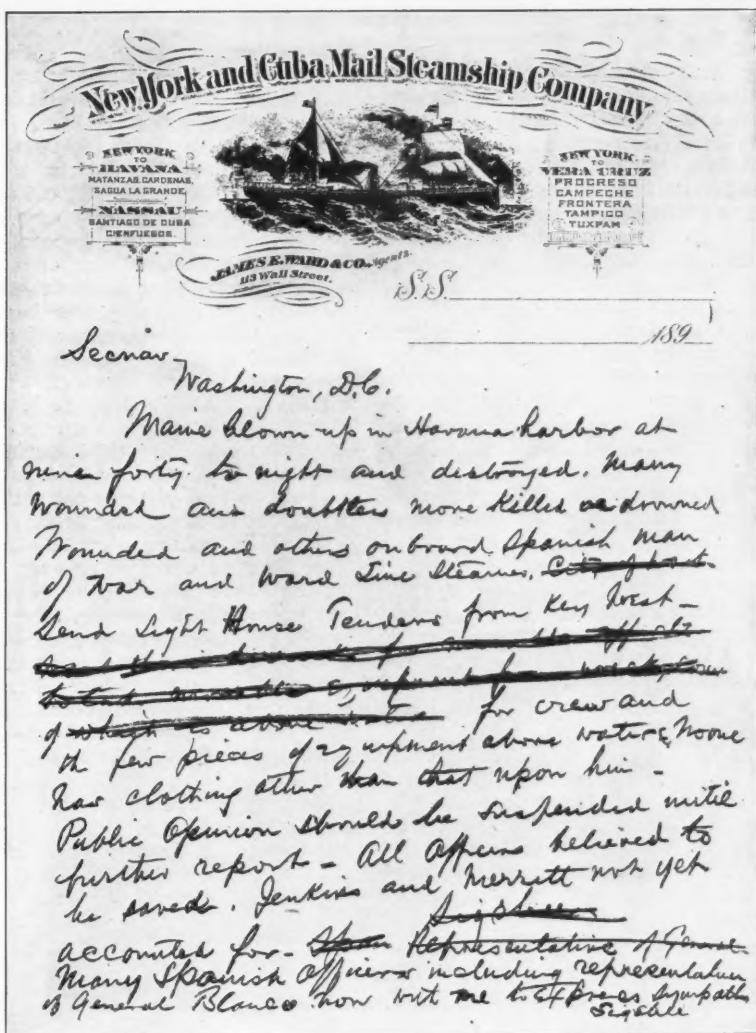 New York and Cuba Mail Steamship Company
NEW YORK
TO
HAVANA
MATANZAS, CARDENAS,
SAGUA LA GRANDE,
NASSAU
SANTIAGO DE CUBA
CIENFUEGOS.
NEW YORK
TO
VERA CRUZ
PROGRESO
CAMPECHE
FRONTERA
TAMPICO
TUXPAM
JAMES E. WARD & CO. Agents.
113 Wall Street.
S.S.
189
Secnav
Washington, D.C.
Maine blown up in Havana harbor at
nine forty to night and destroyed. Many
wounded and doubtless more killed or drowned
Wounded and others onboard Spanish man
of war and Ward Line Steamer.
Send Light House Tenders from Key West -
for crew and
the few pieces of equipment above water. No one
has clothing other than that upon him -
Public Opinion should be suspended until
further report - All Officers believed to
be saved. Jenkins and Merritt not yet
Sigsbee
accounted for - Representative of General
Many Spanish Officers including representatives
of General Blanco now with me to express sympathy
Sigsbee